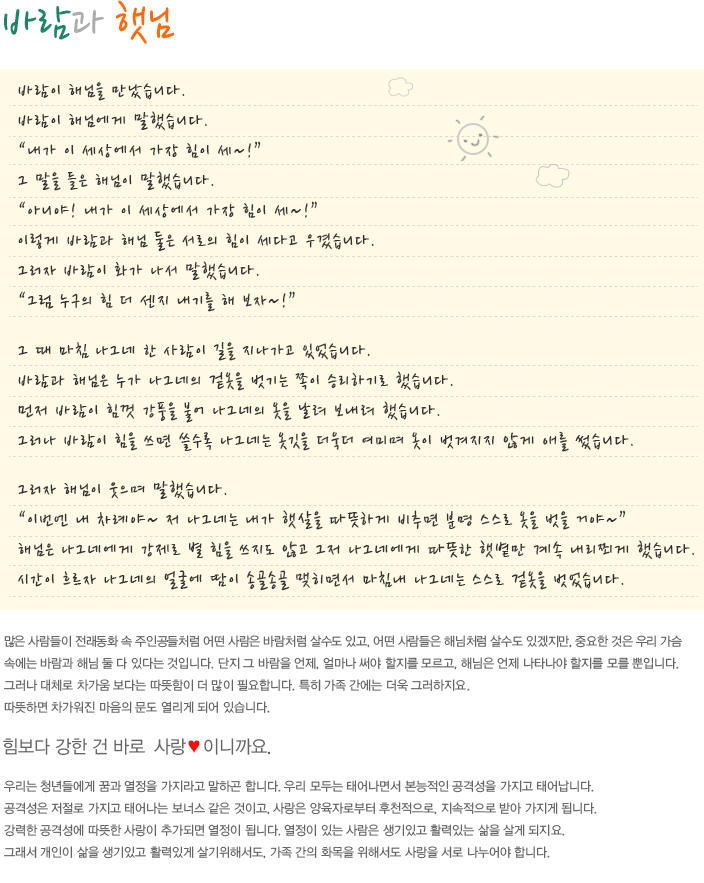 바람과 햇님
바람이 해님을 만났습니다.
바람이 해님에게 말했습니다.
“내가 이 세상에서 가장 힘이 세~!”
그 말을 들은 해님이 말했습니다.
“아니야! 내가 이 세상에서 가장 힘이 세~!”
이렇게 바람과 해님 둘은 서로의 힘이 세다고 우겼습니다.
그러자 바람이 화가 나서 말했습니다.
“그럼 누구의 힘 더 센지 내기를 해 보자~!”
그 때 마침 나그네 한 사람이 길을 지나가고 있었습니다.
바람과 해님은 누가 나그네의 겉옷을 벗기는 쪽이 승리하기로 했습니다.
먼저 바람이 힘껏 강풍을 불어 나그네의 옷을 날려 보내려 했습니다.
그러나 바람이 힘을 쓰면 쓸수록 나그네는 옷깃을 더욱더 여미며 옷이 벗겨지지 않게 애를 썼습니다.
그러자 해님이 웃으며 말했습니다.
“이번엔 내 차례야~ 저 나그네는 내가 햇살을 따뜻하게 비추면 분명 스스로 옷을 벗을 거야~”
해님은 나그네에게 강제로 별 힘을 쓰지도 않고 그저 나그네에게 따뜻한 햇볕만 계속 내리쬐게 했습니다.
시간이 흐르자 나그네의 얼굴에 땀이 송골송골 맺히면서 마침내 나그네는 스스로 겉옷을 벗었습니다.
많은 사람들이 전래동화 속 주인공들처럼 어떤 사람은 바람처럼 살수도 있고, 어떤 사람들은 해님처럼 살수도 있겠지만, 중요한 것은 우리 가슴
속에는 바람과 해님 둘 다 있다는 것입니다. 단지 그 바람을 언제, 얼마나 써야 할지를 모르고, 해님은 언제 나타나야 할지를 모를 뿐입니다.
그러나 대체로 차가움 보다는 따뜻함이 더 많이 필요합니다. 특히 가족 간에는 더욱 그러하지요.
따뜻하면 차가워진 마음의 문도 열리게 되어 있습니다.
힘보다 강한 건 바로 사랑♥이니까요.
우리는 청년들에게 꿈과 열정을 가지라고 말하곤 합니다. 우리 모두는 태어나면서 본능적인 공격성을 가지고 태어납니다.
공격성은 저절로 가지고 태어나는 보너스 같은 것이고, 사랑은 양육자로부터 후천적으로, 지속적으로 받아 가지게 됩니다.
강력한 공격성에 따뜻한 사랑이 추가되면 열정이 됩니다. 열정이 있는 사람은 생기있고 활력있는 삶을 살게 되지요.
그래서 개인이 삶을 생기있고 활력있게 살기위해서도, 가족 간의 화목을 위해서도 사랑을 서로 나누어야 합니다.